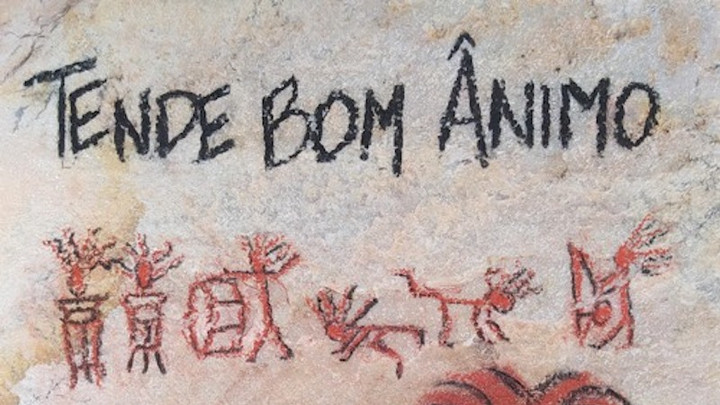 TENDE BOM ÂNIMO